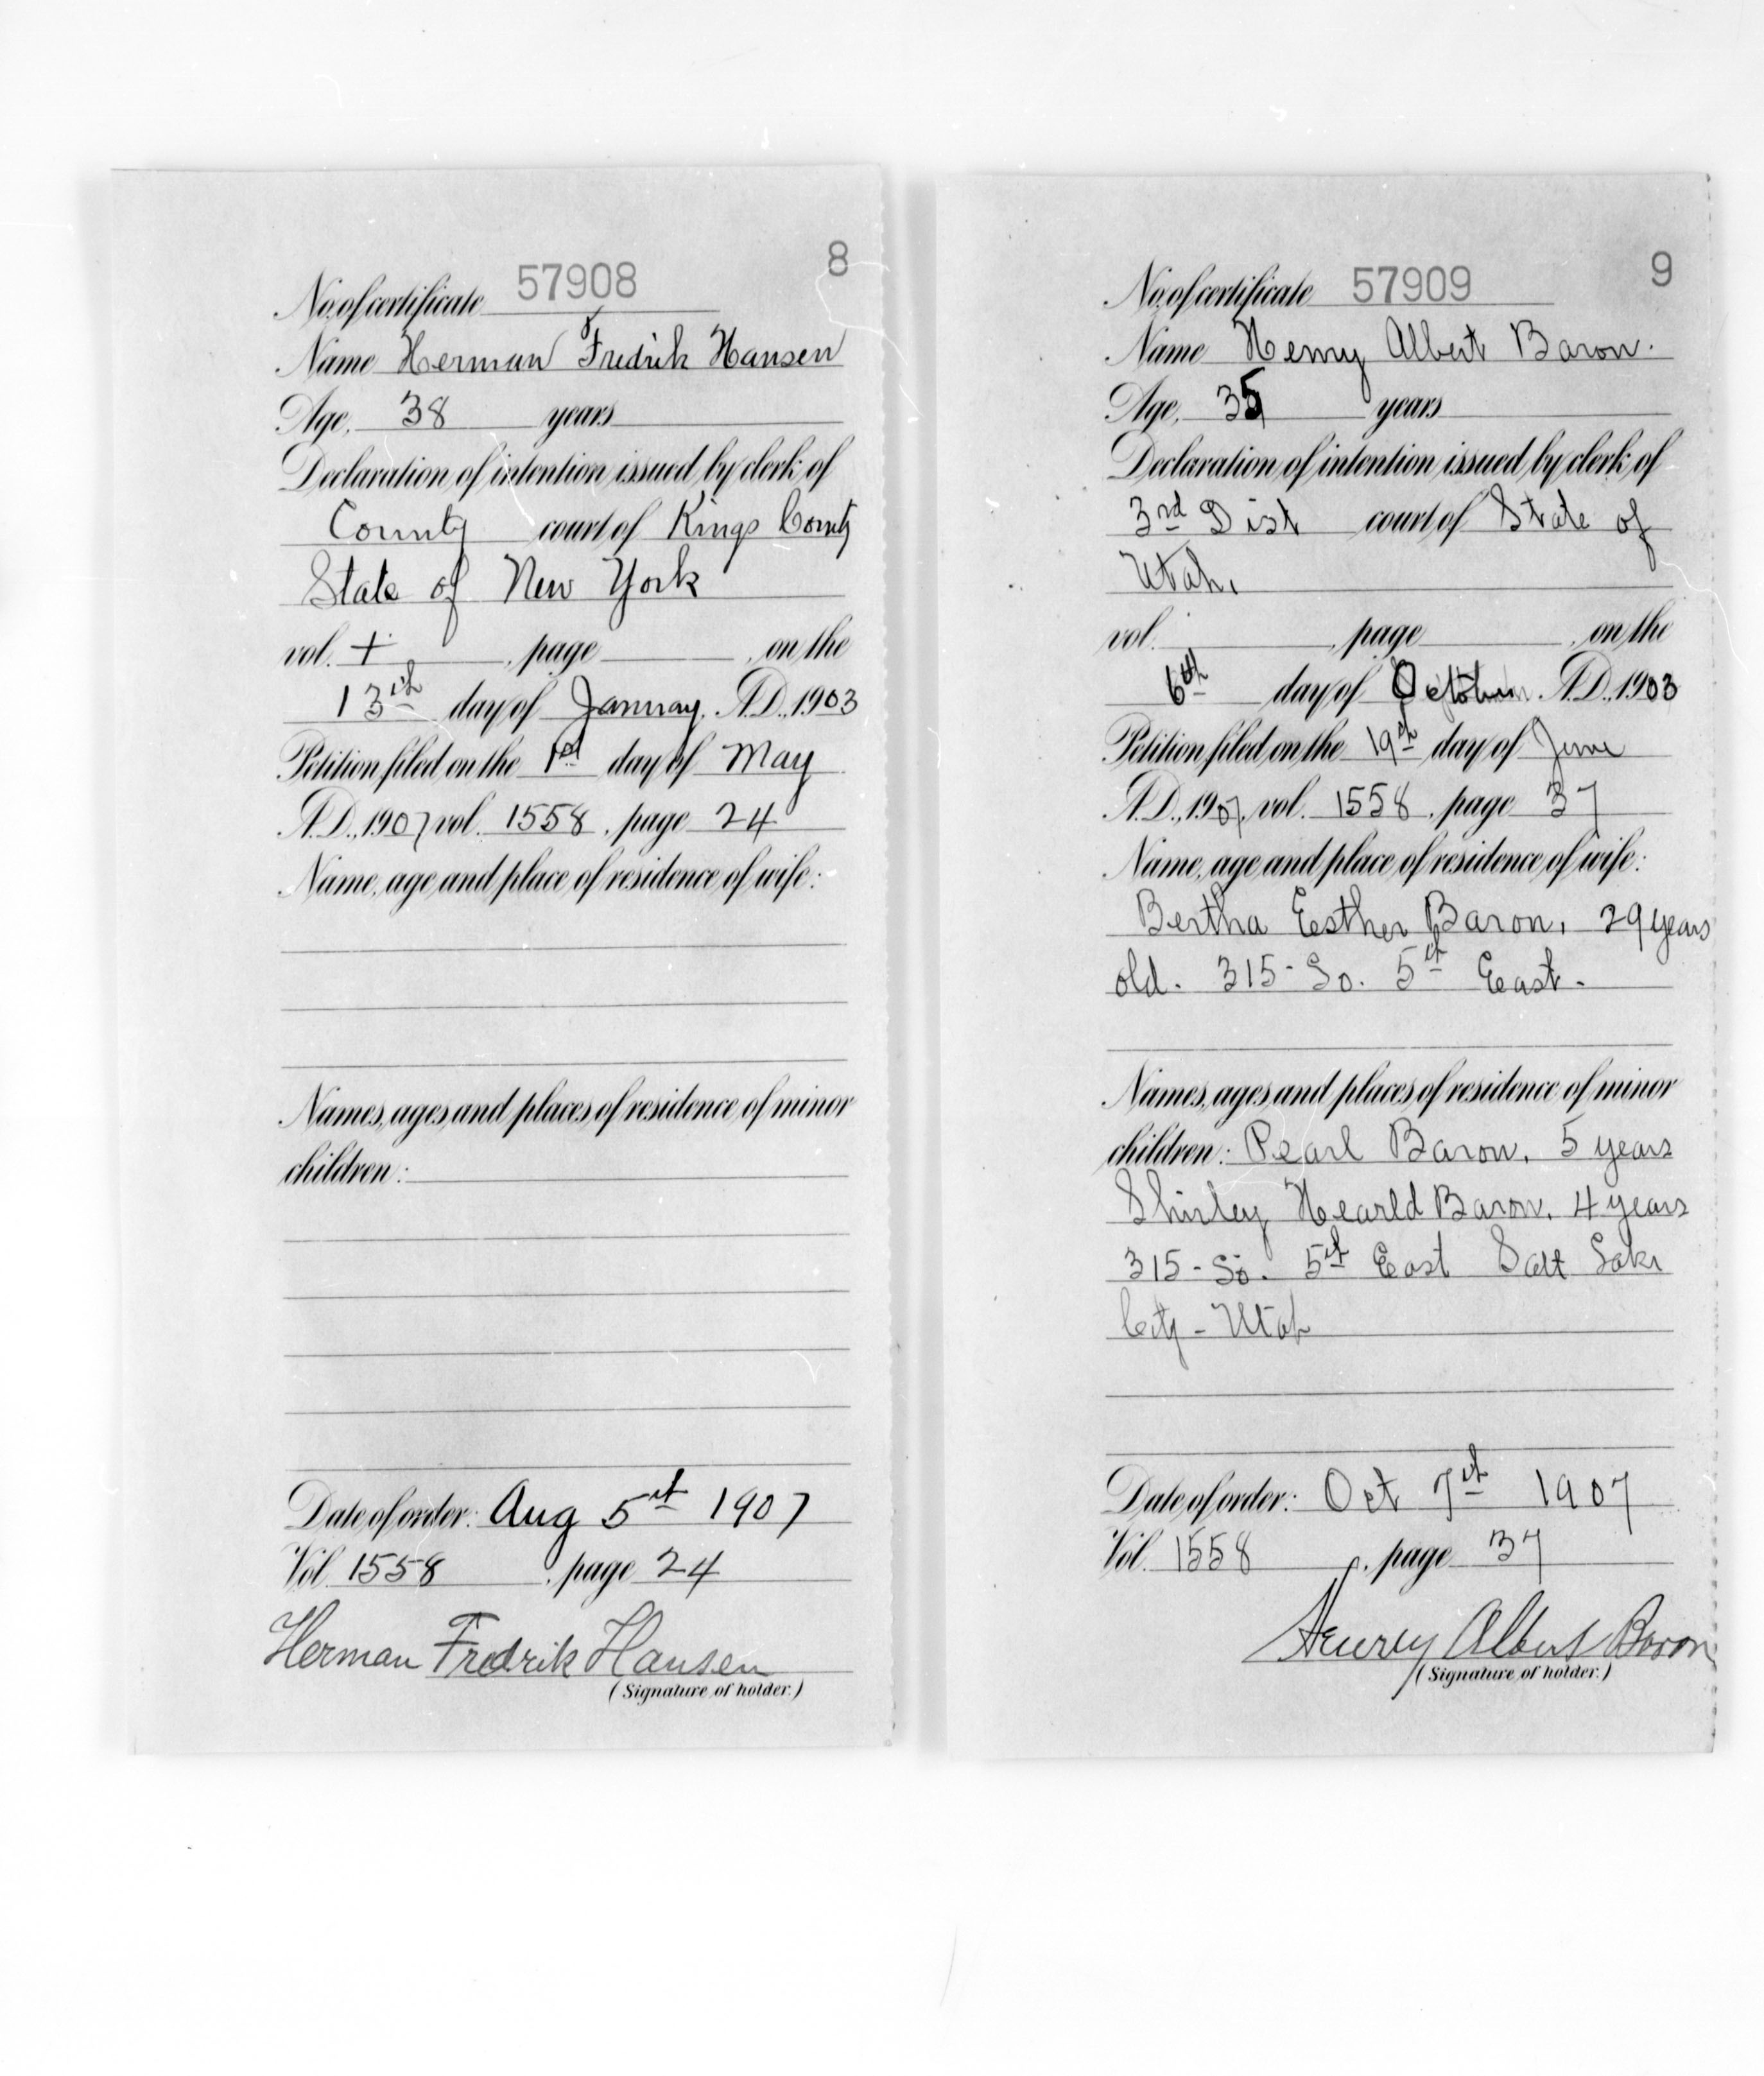 8
No. of certificate 57908
Name Herman Fredrik Hansen
Age, 38 years
Declaration of intention issued by clerk of
County court of Kings County
State of New York
vol. + , page , on the
13th day of January, A.D., 1903
Petition filed on the 1st day of May
A.D., 1907 vol. 1558, page 24
Name, age and place of residence of wife:
Names, ages and places of residence of minor
children:
Date of order: Aug 5th 1907
Vol. 1558, page 24
Herman Fredrik Hansen
(Signature of holder.)
9
No. of certificate 57909
Name Henry Albert Baron.
Age, 35 years
Declaration of intention issued by clerk of
3rd Dist court of State of
Utah,
vol. , page , on the
6th day of October A.D., 1903
Petition filed on the 19th day of June
A.D., 1907, vol. 1558, page 37
Name, age and place of residence of wife:
Bertha Eesther Baron, 29 years
old. 315- So. 5th East.
Names, ages and places of residence of minor
children: Pearl Baron, 5 years
Shirley Hearld Baron, 4 years
315- So. 5th East Salt Lake
City - Utah
Date of order: Oct 7th 1907
Vol. 1558, page 37
Henry Albert Baron
(Signature of holder.)